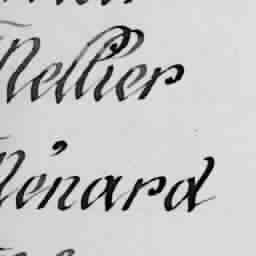 Mellier
Ménard